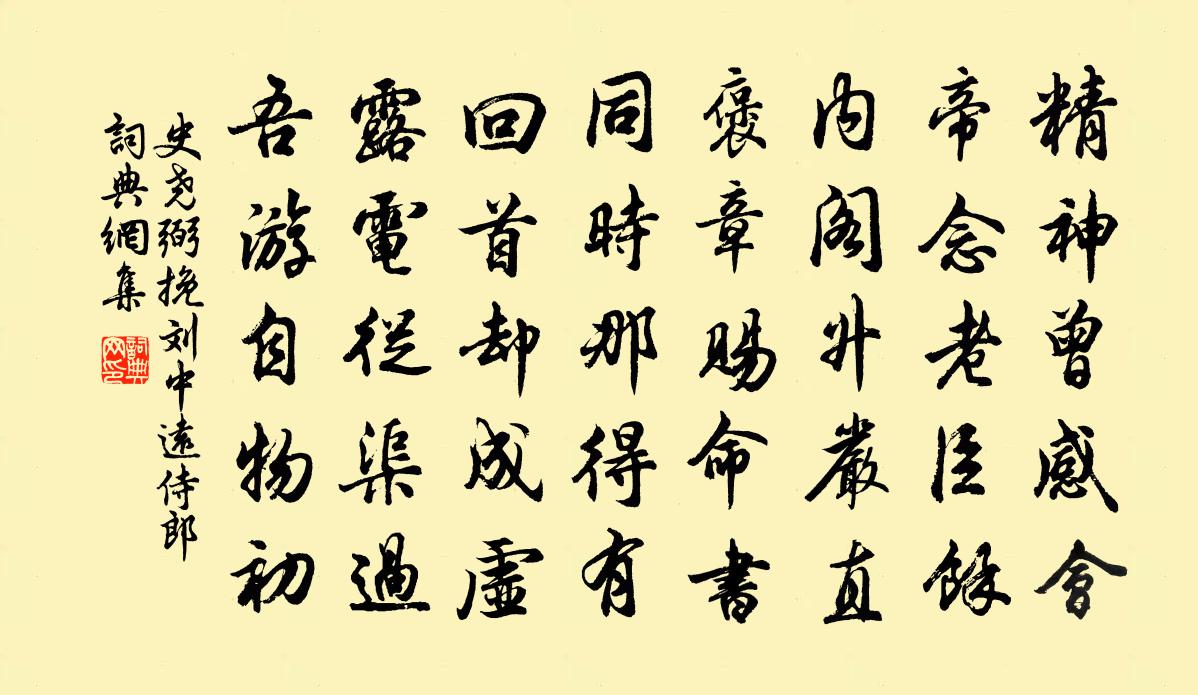 精神曾感會
帝念老臣餘
内阁升嚴直
褒章賜命書
同時那得有
回首却成虛
露電從渠過
吾游自物初
史尧弼挽刘中遠侍郎
詞典網集
詞典网印